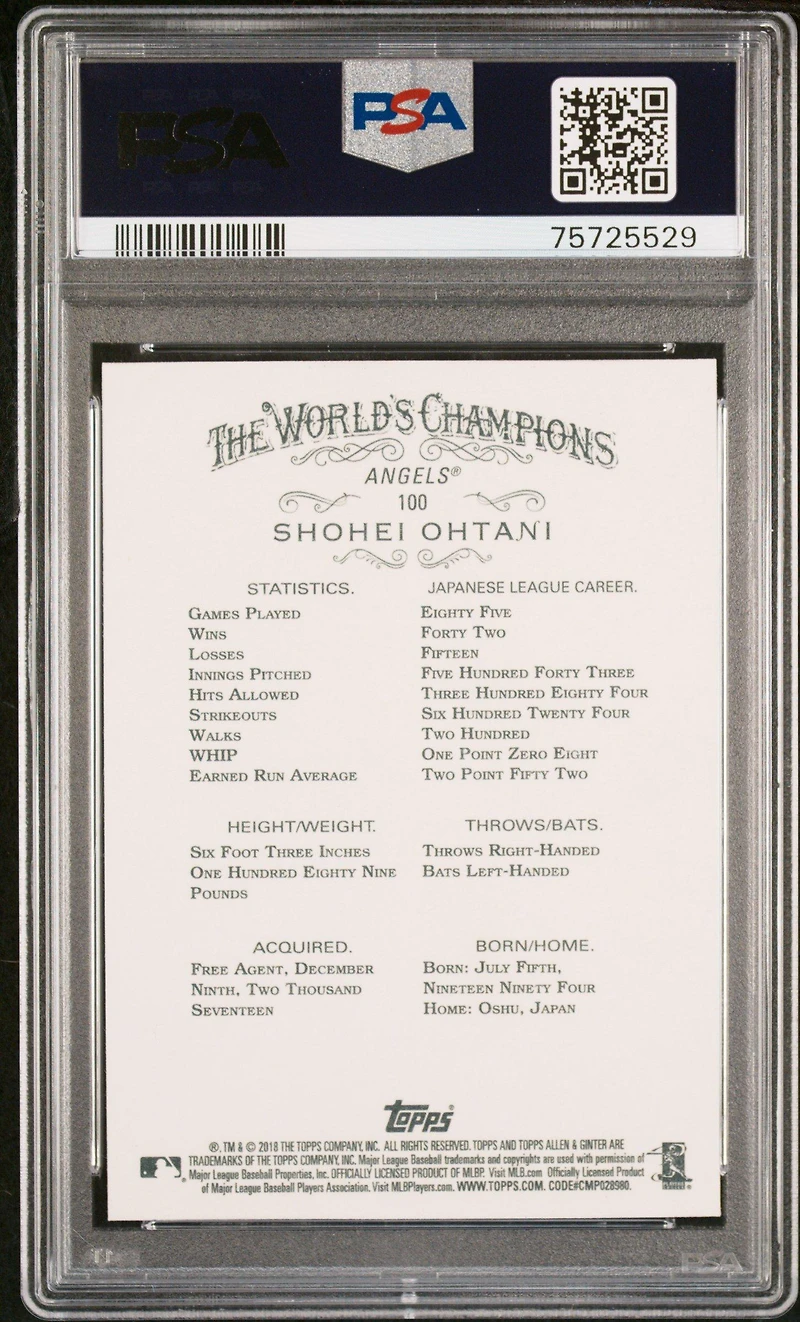 PSA
PSA
75725529
THE WORLD'S CHAMPIONS
ANGELS®
100
SHOHEI OHTANI
STATISTICS. JAPANESE LEAGUE CAREER.
GAMES PLAYED EIGHTY FIVE
WINS FORTY TWO
LOSSES FIFTEEN
INNINGS PITCHED FIVE HUNDRED FORTY THREE
HITS ALLOWED THREE HUNDRED EIGHTY FOUR
STRIKEOUTS SIX HUNDRED TWENTY FOUR
WALKS TWO HUNDRED
WHIP ONE POINT ZERO EIGHT
EARNED RUN AVERAGE TWO POINT FIFTY TWO
HEIGHT/WEIGHT. THROWS/BATS.
SIX FOOT THREE INCHES THROWS RIGHT-HANDED
ONE HUNDRED EIGHTY NINE BATS LEFT-HANDED
POUNDS
ACQUIRED. BORN/HOME.
FREE AGENT, DECEMBER BORN: JULY FIFTH,
NINTH, TWO THOUSAND NINETEEN NINETY FOUR
SEVENTEEN HOME: OSHU, JAPAN
Topps®
®, TM & © 2018 THE TOPPS COMPANY, INC. ALL RIGHTS RESERVED. TOPPS AND TOPPS ALLEN & GINTER ARE
TRADEMARKS OF THE TOPPS COMPANY, INC. Major League Baseball trademarks and copyrights are used with permission of
Major League Baseball Properties, Inc. OFFICIALLY LICENSED PRODUCT OF MLBP. Visit MLB.com Officially Licensed Product
of Major League Baseball Players Association. Visit MLBPlayers.com. WWW.TOPPS.COM. CODE#CMP028980.
PSA